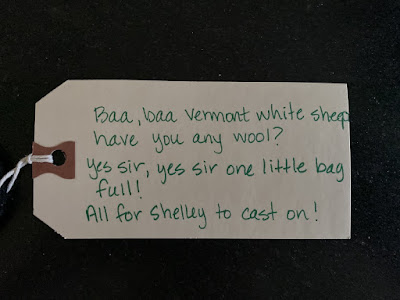 Baa, baa Vermont white sheep
have you any wool?
yes sir, yes sir one little bag
full!
All for Shelley to cast on!